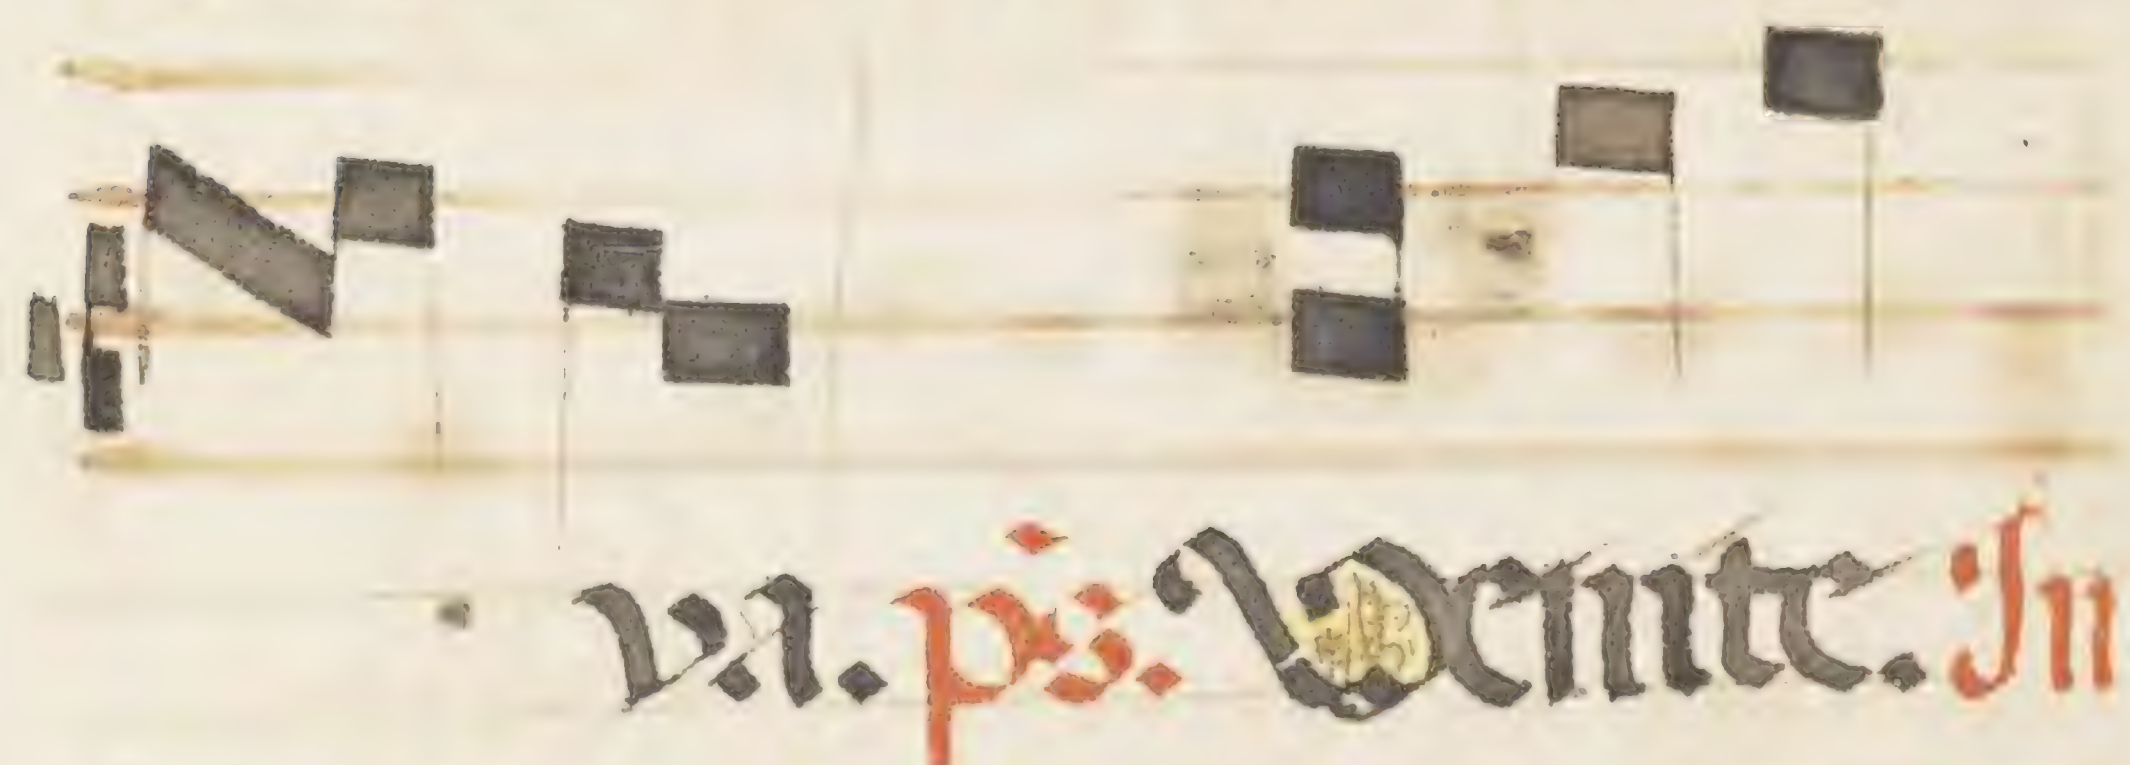 va. ps. Venite. In